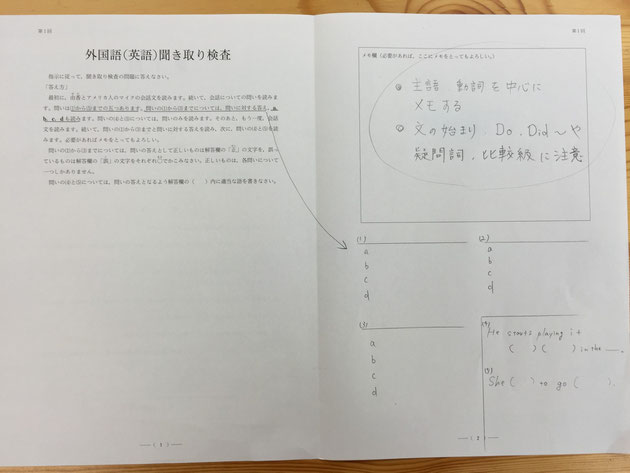 第1回
外国語(英語)聞き取り検査
指示に従って、聞き取り検査の問題に答えなさい。
「答え方」
最初に、由香とアメリカ人のマイクの会話文を読みます。続いて、会話についての問いを読みま
す。問いは①から⑤までの五つあります。問いの①から③までについては、問いに対する答え、a、
b、c、dも読みます。問いの④と⑤については、問いのみを読みます。そのあと、もう一度、会話
文を読みます。続いて、問いの①から③までと問いに対する答えを読み、次に、問いの④と⑤を読
みます。必要があればメモをとってもよろしい。
問いの①から③までについては、問いの答えとして正しいものは解答欄の「正」の文字を、誤っ
ているものは解答欄の「誤」の文字をそれぞれ○でかこみなさい。正しいものは、各問いについて
一つしかありません。
問いの④と⑤については、問いの答えとなるよう解答欄の( )内に適当な語を書きなさい。
( 1 )
第1回
メモ欄(必要があれば、ここにメモをとってもよろしい。)
主語 動詞を中心に
メモする
文の始まり、Do、Did〜や
疑問詞、比較級に注意
(1)
a
b
c
d
(2)
a
b
c
d
(3)
a
b
c
d
(4)
He starts playing it
( ) ( ) in the __.
(5)
She ( ) to go ( ).
( 2 )